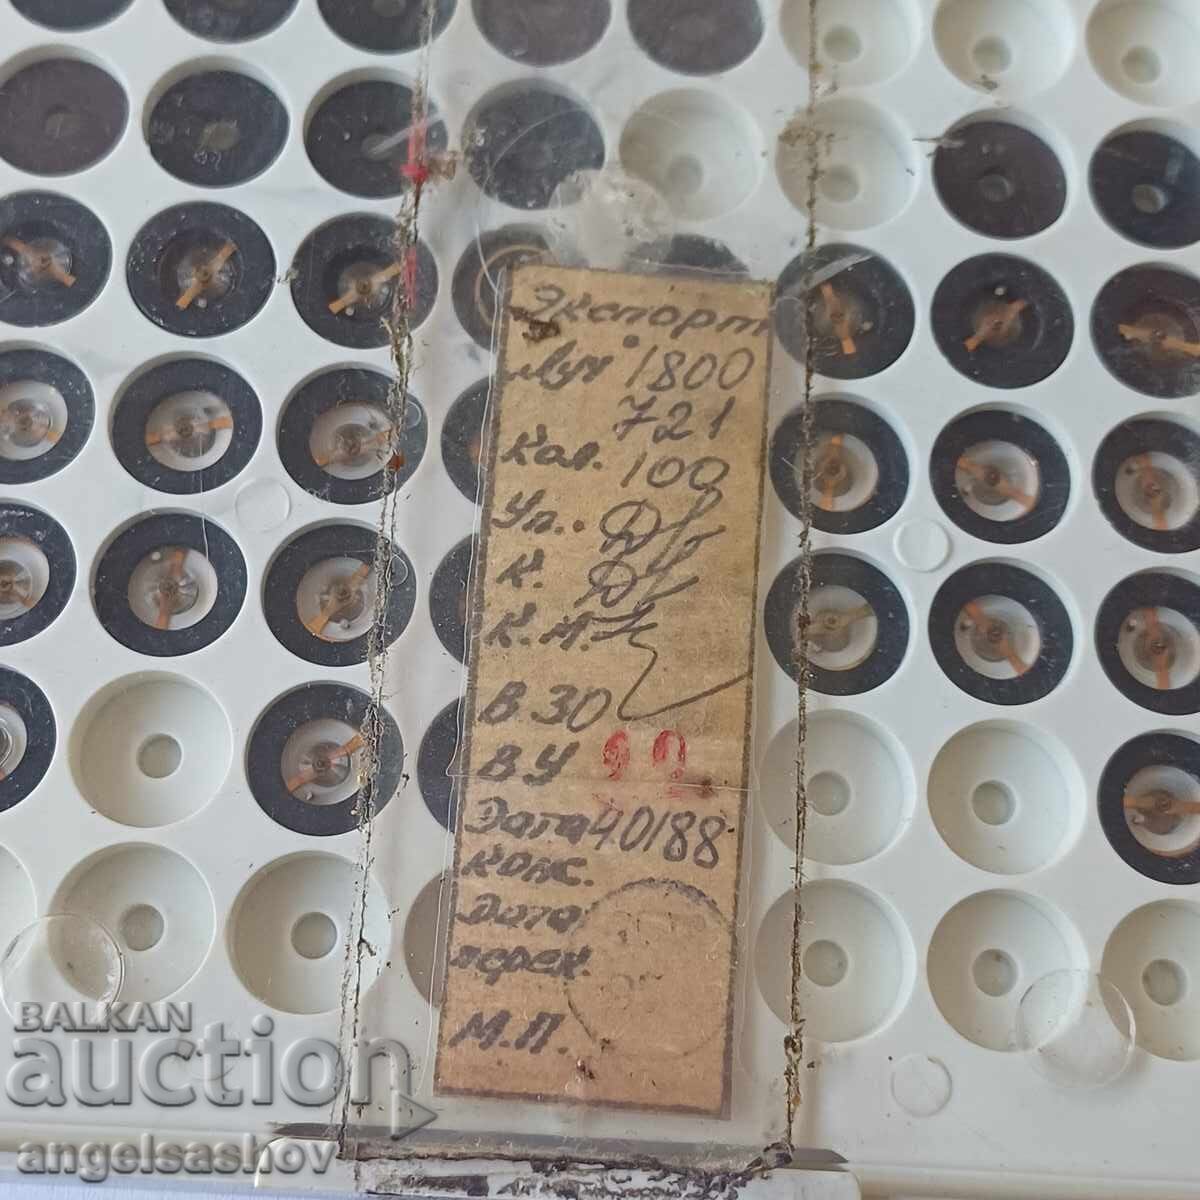 Экспорт
Луч 1800
721
Кол. 100
Уп.
К.
К.М.
В.30
ВУ 92
Дата 40188
Конс.
Дата
перек.
М.П.
BALKAN
auction
angelsashov